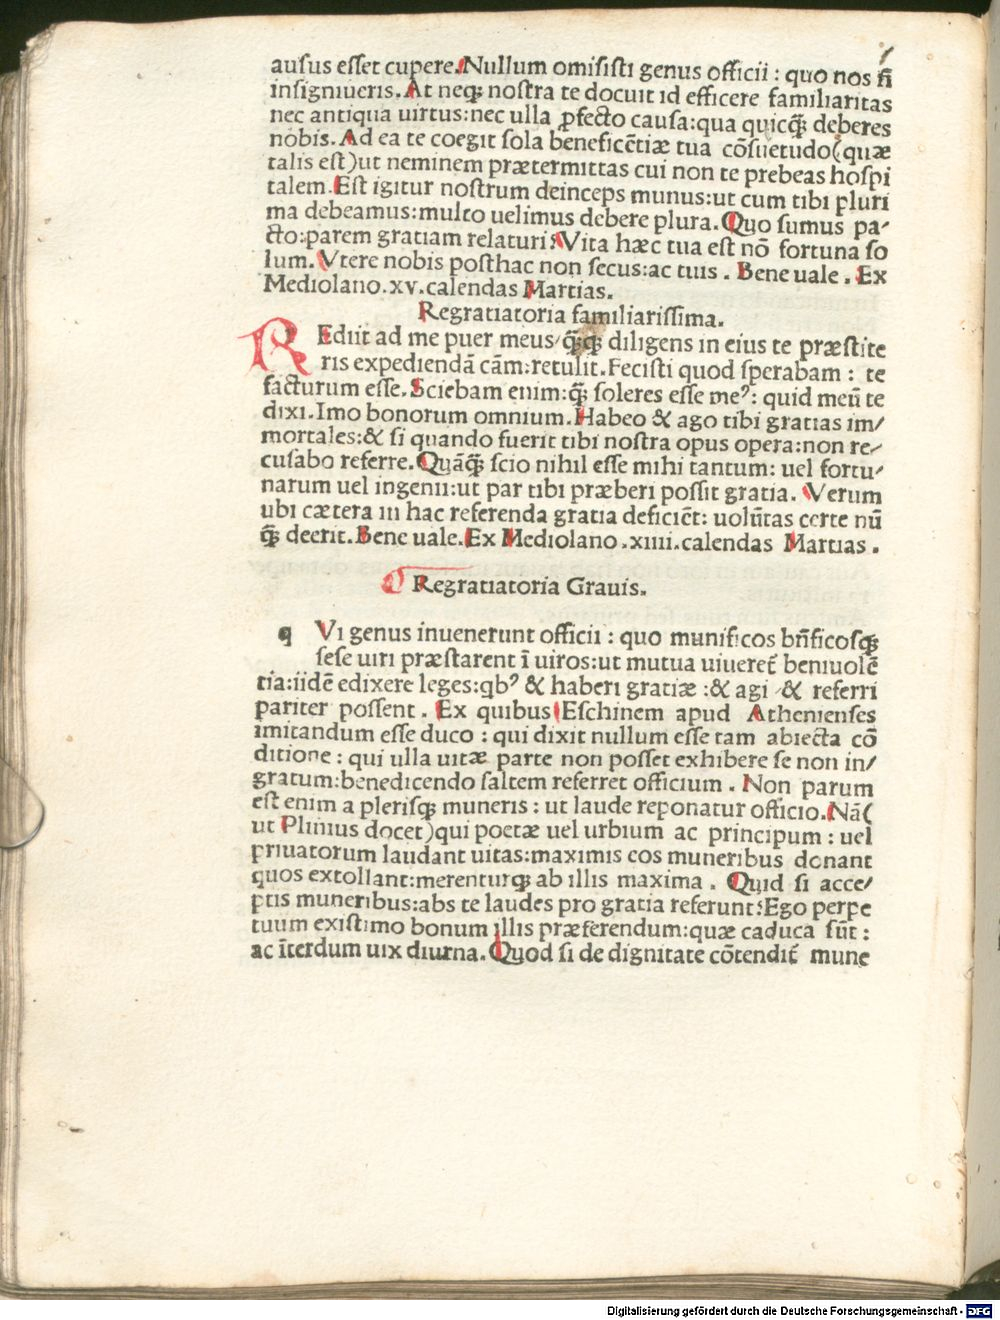 auſus eſſet cupere. Nullum omiſiſti genus officii : quo nos n̄
inſigniueris. At neqꝫ noſtra te docuit id efficere familiaritas
nec antiqua uirtus: nec ulla ꝓfecto cauſa: qua quicq̄ꝫ deberes
nobis. Ad ea te coegit ſola beneficētiæ tua cōſuetudo (quæ
talis eſt) ut neminem prætermittas cui non te prebeas hoſpi
talem. Eſt igitur noſtrum deinceps munus: ut cum tibi pluri
ma debeamus: multo uelimus debere plura. Quo ſumus pa⸗
cto: parem gratiam relaturi? Vita hæc tua eſt nō fortuna ſo
lum. Vtere nobis poſthac non ſecus: ac tuis . Bene uale . Ex
Mediolano. xv. calendas Martias.
Regratiatoria familiariſſima.
R Ediit ad me puer meus/ q̄ꝫq̄ꝫ diligens in eius te præſtite
ris expediendā cām: retulit. Feciſti quod ſperabam : te
facturum eſſe. Sciebam enim: q̄ꝫ ſoleres eſſe meꝰ: quid meū te
dixi. Imo bonorum omnium. Habeo & ago tibi gratias im/
mortales: & ſi quando fuerit tibi noſtra opus opera: non re/
cuſabo referre. Quāq̄ꝫ ſcio nihil eſſe mihi tantum: uel fortu/
narum uel ingenii: ut par tibi præberi poſſit gratia. Verum
ubi cætera in hac referenda gratia deficiēt: uolūtas certe nū
q̄ꝫ deerit. Bene uale. Ex Mediolano .xiiii. calendas Martias .
Regratiatoria Grauis.
q Vi genus inuenerunt officii : quo munificos bn̄ficoſqꝫ
ſeſe uiri præſtarent ī uiros: ut mutua uiueret̄ beniuolē
tia: iidē edixere leges: qbꝰ & haberi gratiæ : & agi & referri
pariter poſſent . Ex quibus Eſchinem apud Athenienſes
imitandum eſſe duco : qui dixit nullum eſſe tam abiecta cō
ditione : qui ulla uitæ parte non poſſet exhibere ſe non in/
gratum: benedicendo ſaltem referret officium . Non parum
eſt enim a pleriſqꝫ muneris : ut laude reponatur officio. Nā (
ut Plinius docet) qui poetæ uel urbium ac principum : uel
priuatorum laudant uitas: maximis eos muneribus donant
quos extollant: merenturqꝫ ab illis maxima . Quid ſi acce/
ptis muneribus: abs te laudes pro gratia referunt? Ego perpe
tuum exiſtimo bonum illis præferendum: quæ caduca ſūt :
ac īterdum uix diurna. Quod ſi de dignitate cōtendit̄ mune
Digitalisierung gefördert durch die Deutsche Forschungsgemeinschaft - DFG